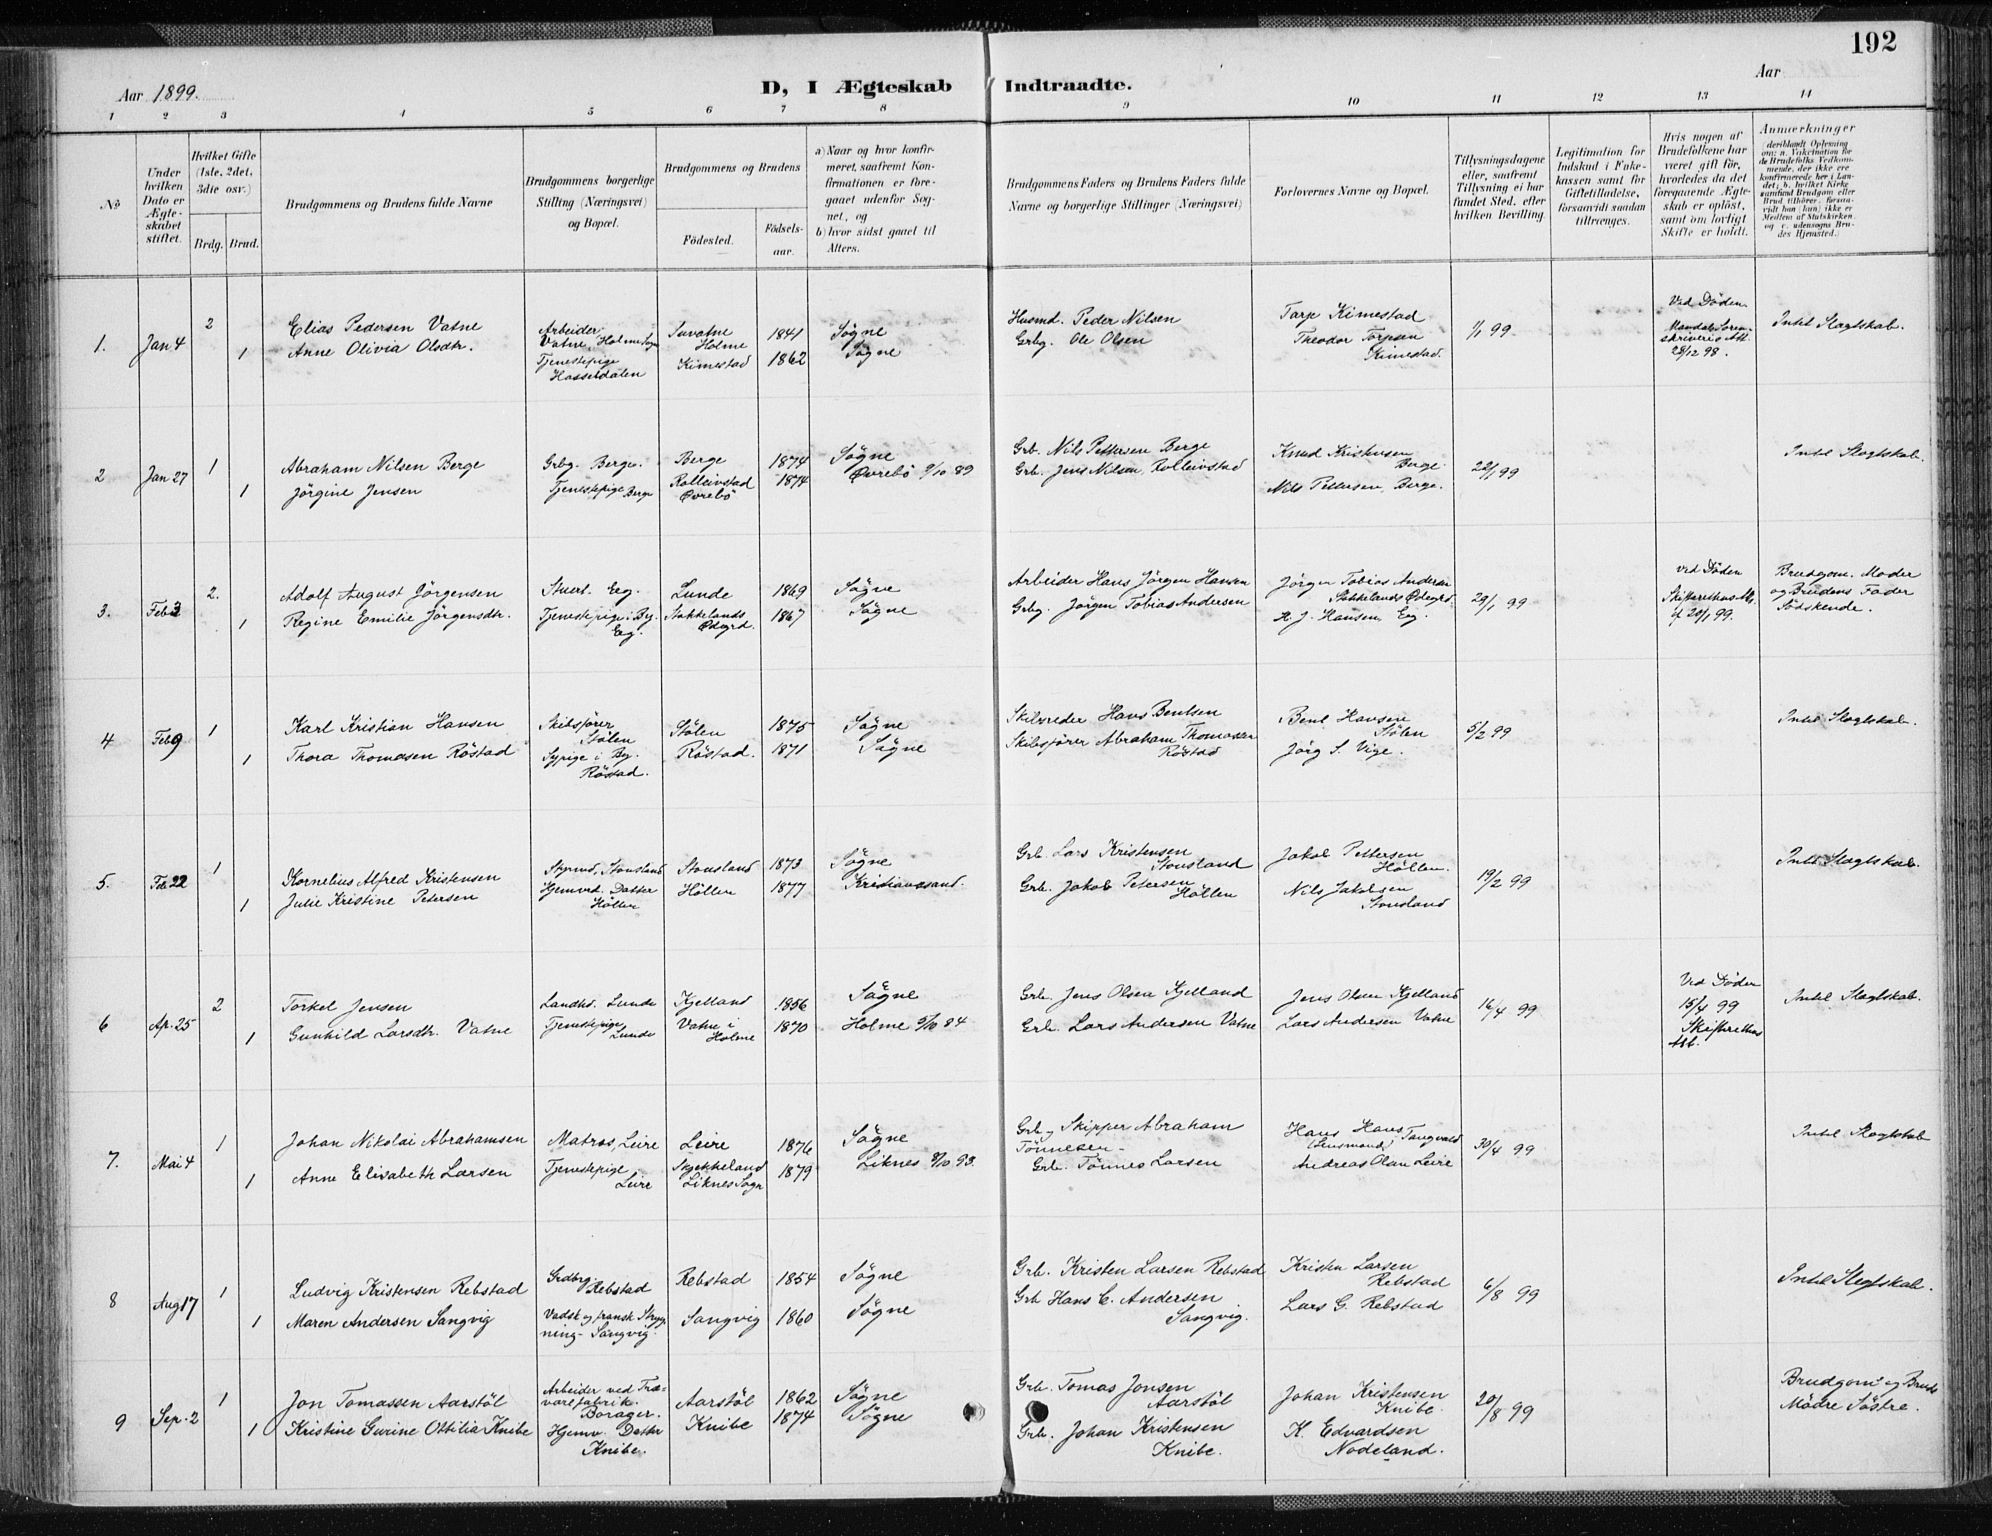 192
Aar 1899.
D, I Ægteskab Indtraadte.
Aar
1 2 3 4 5 6 7 8 9 10 11 12 13 14
№
Under hvilken Dato er Ægteskabet stiftet.
Hvilket Gifte (1ste, 2det, 3die osv.)
Brdg. Brud.
Brudgommens og Brudens fulde Navne
Brudgommens borgerlige Stilling (Næringsvei) og Bopæl.
Brudgommens og Brudens
Födested.
Födselsaar.
a) Naar og hvor konfirmeret, saafremt Konfirmationen er foregaaet udenfor Sognet, og
b) hvor sidst gaaet til Alters.
Brudgommens Faders og Brudens Faders fulde Navne og borgerlige Stillinger (Næringsvei)
Forlovernes Navne og Bopæl.
Tillysningsdagene eller, saafremt Tillysning ei har fundet Sted, efter hvilken Bevilling.
Legitimation for Indskud i Enkekassen samt for Giftetilladelse, forsaavidt saadan tiltrænges.
Hvis nogen af Brudefolkene har været gift før, hvorledes da det foregaaende Ægteskab er oplöst, samt om lovligt Skifte er holdt.
Anmærkninger (deriblandt Oplysning om: a. Vakcination for de Brudefolks Vedkommende, der ikke ere konfirmerede her i Landet; b. hvilket Kirkesamfund Brudgom eller Brud tilhører, forsaavidt han (hun) ikke er Medlem af Statskirken, og c. udensogns Brudes Hjemsted.)
1. Jan 4 2 Elias Pedersen Vatne Arbeider Vatne, Holme Sogn Suvatne Holme 1841 Søgne Husmd. Peder Nilsen Tarje Kimestad 1/1 99 Ved Döden Mandals Sorenskriveris Att. 28/12 98. Intet Slagtskab.
1 Anne Olivia Olsdtr. Tjenestepige Hasseldalen Kimestad 1862 Søgne Grbg. Ole Olsen Theodor Torjesen Kimestad.
2 Jan 27 1 Abraham Nilsen Berge Grbg. Berge. Berge 1874 Søgne Grb. Nils Pettersen Berge Knud Kristensen Berge 22/1 99 Intet Slagtskab.
1 Jörgine Jensen Tjenestepige Berge Rolleivstad Øvrebö 1874 Øvrebö 9/10 89 Grb. Jens Nilsen Rolleivstad Nils Pettersen, Berge.
3. Feb 3 2. Adolf August Jörgensen Stuert. Eeg. Lunde 1869 Søgne Arbeider Hans Jörgen Hansen Jörgen Tobias Andersen Stokkelands Ødegrd. 29/1 99 ved Döden Skifterettens Att. 20/1 99. Brudgom. Moder og Brudens Fader Södskende.
1 Regine Emilie Jörgensdtr. Tjenestepige i By. Eeg. Stokkelands Ødegrd. 1867 Søgne Grbg. Jörgen Tobias Andersen H. J. Hansen Eg.
4 Feb 9 1 Karl Kristian Hansen Skibsfører Stölen Stölen 1875 Søgne Skibsreder Hans Bentsen Bent Hansen Stölen 5/2 99 Intet Slagtskab.
1 Thora Thomasen Röstad Sypige i By. Röstad. Röstad. 1871 Søgne Skibsfører Abraham Thomasen Röstad Jörg S. Vige.
5. Feb 22 1 Kornelius Alfred Kristensen Styrmd, Stousland Stousland 1873 Søgne Grb. Lars Kristensen Stousland Jakob Pettersen Höllen. 19/2 99 Intet Slagtskab.
1 Julie Kristine Petersen Hjemvd. Datter Höllen Höllen 1877 Kristianssand. Grb. Jakob Petersen Höllen Nils Jakobsen Stousland
6 Ap. 25 2 Torkel Jensen Landhd. Lunde Kjelland 1856 Søgne Grb. Jens Olsen Kjelland Jens Olsen Kjelland 16/4 99 Ved Döden 15/4 99 Skifterettens Att. Intet Slagtskab.
1 Gunhild Larsdtr. Vatne Tjenestepige Lunde Vatne i Holme 1870 Holme 5/10 84 Grb. Lars Andersen Vatne Lars Andersen Vatne
7. Mai 4 1 Johan Nikolai Abrahamsen Matros, Leire Leire 1876 Søgne Grb. og Skipper Abraham Tönnesen Hans Hans. Tangvald (Lensmand) 30/4 99 Intet Slagtskab
1 Anne Elisabeth Larsen Tjenestepige Leire Stykkeland Liknes Sogn 1879 Liknes 8/10 93. Grb. Tönnes Larsen Andreas Olsen Leire
8 Aug 17 1 Ludvig Kristensen Rebstad Grdbrg. Rebstad Rebstad 1854 Søgne Grb. Kristen Larsen Rebstad Kristen Larsen Rebstad 6/8 99 Intet Slegtskab.
1 Maren Andersen Sangvig Vadsk og fransk Strygning - Sangvig. Sangvig 1860 Søgne Grb Hans C. Andersen Sangvig. Lars G. Rebstad
9 Sep. 2 1 Jon Tomassen Aarstöl Arbeider ved Trævarefabrik. Borager. Aarstöl 1862 Søgne Grb. Tomas Jonsen Aarstöl Johan Kristensen Knibe 20/8 99 Brudgoms og Bruds Mödre Söstre.
1 Kristine Gurine Othilia Knibe Hjemv. Datter Knibe. Knibe 1874 Søgne Grb. Johan Kristensen Knibe. K. Edvardsen Nodeland.